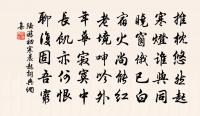 推枕悠然起
寒燈誰與同
曉窗俄已白
宿火尚能紅
老境呻吟裏
年華寂寞中
長飢亦何恨
聊復固吾窮
陸游初寒晨起